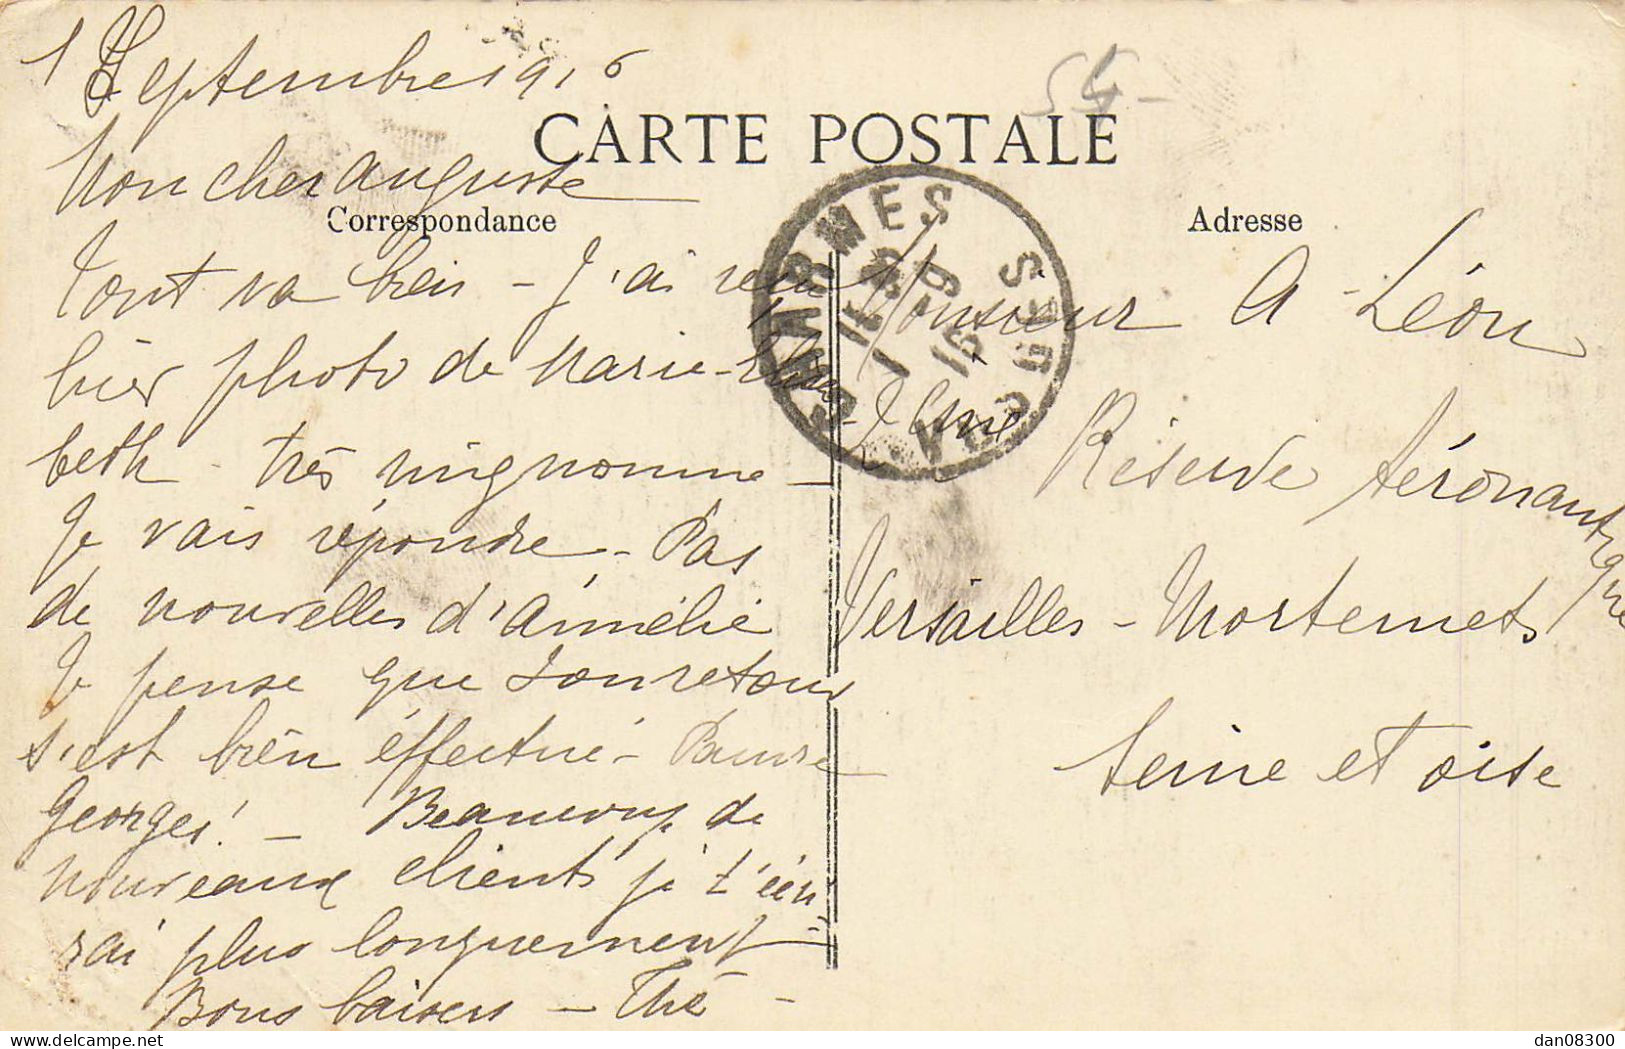 1 Septembre 1916
54-
CARTE POSTALE
Mon cher Auguste
Correspondance
Tout va bien - J'ai reçu
hier photo de Marie-Elisa
beth - très mignonne -
Je vais répondre - Pas
de nouvelles d'Amélie
Je pense que ton retour
s'est bien éffectué - Pauvre
Georges! - Beaucoup de
nouveaux clients je t'écri-
rai plus longuement
Bons baisers - Thé -
Adresse
Monsieur A - Léon
2eme Réserve Aéronautique
Versailles - Mortemets
Seine et oise
CHARMES
VOSGES
1 -9
16
dan08300